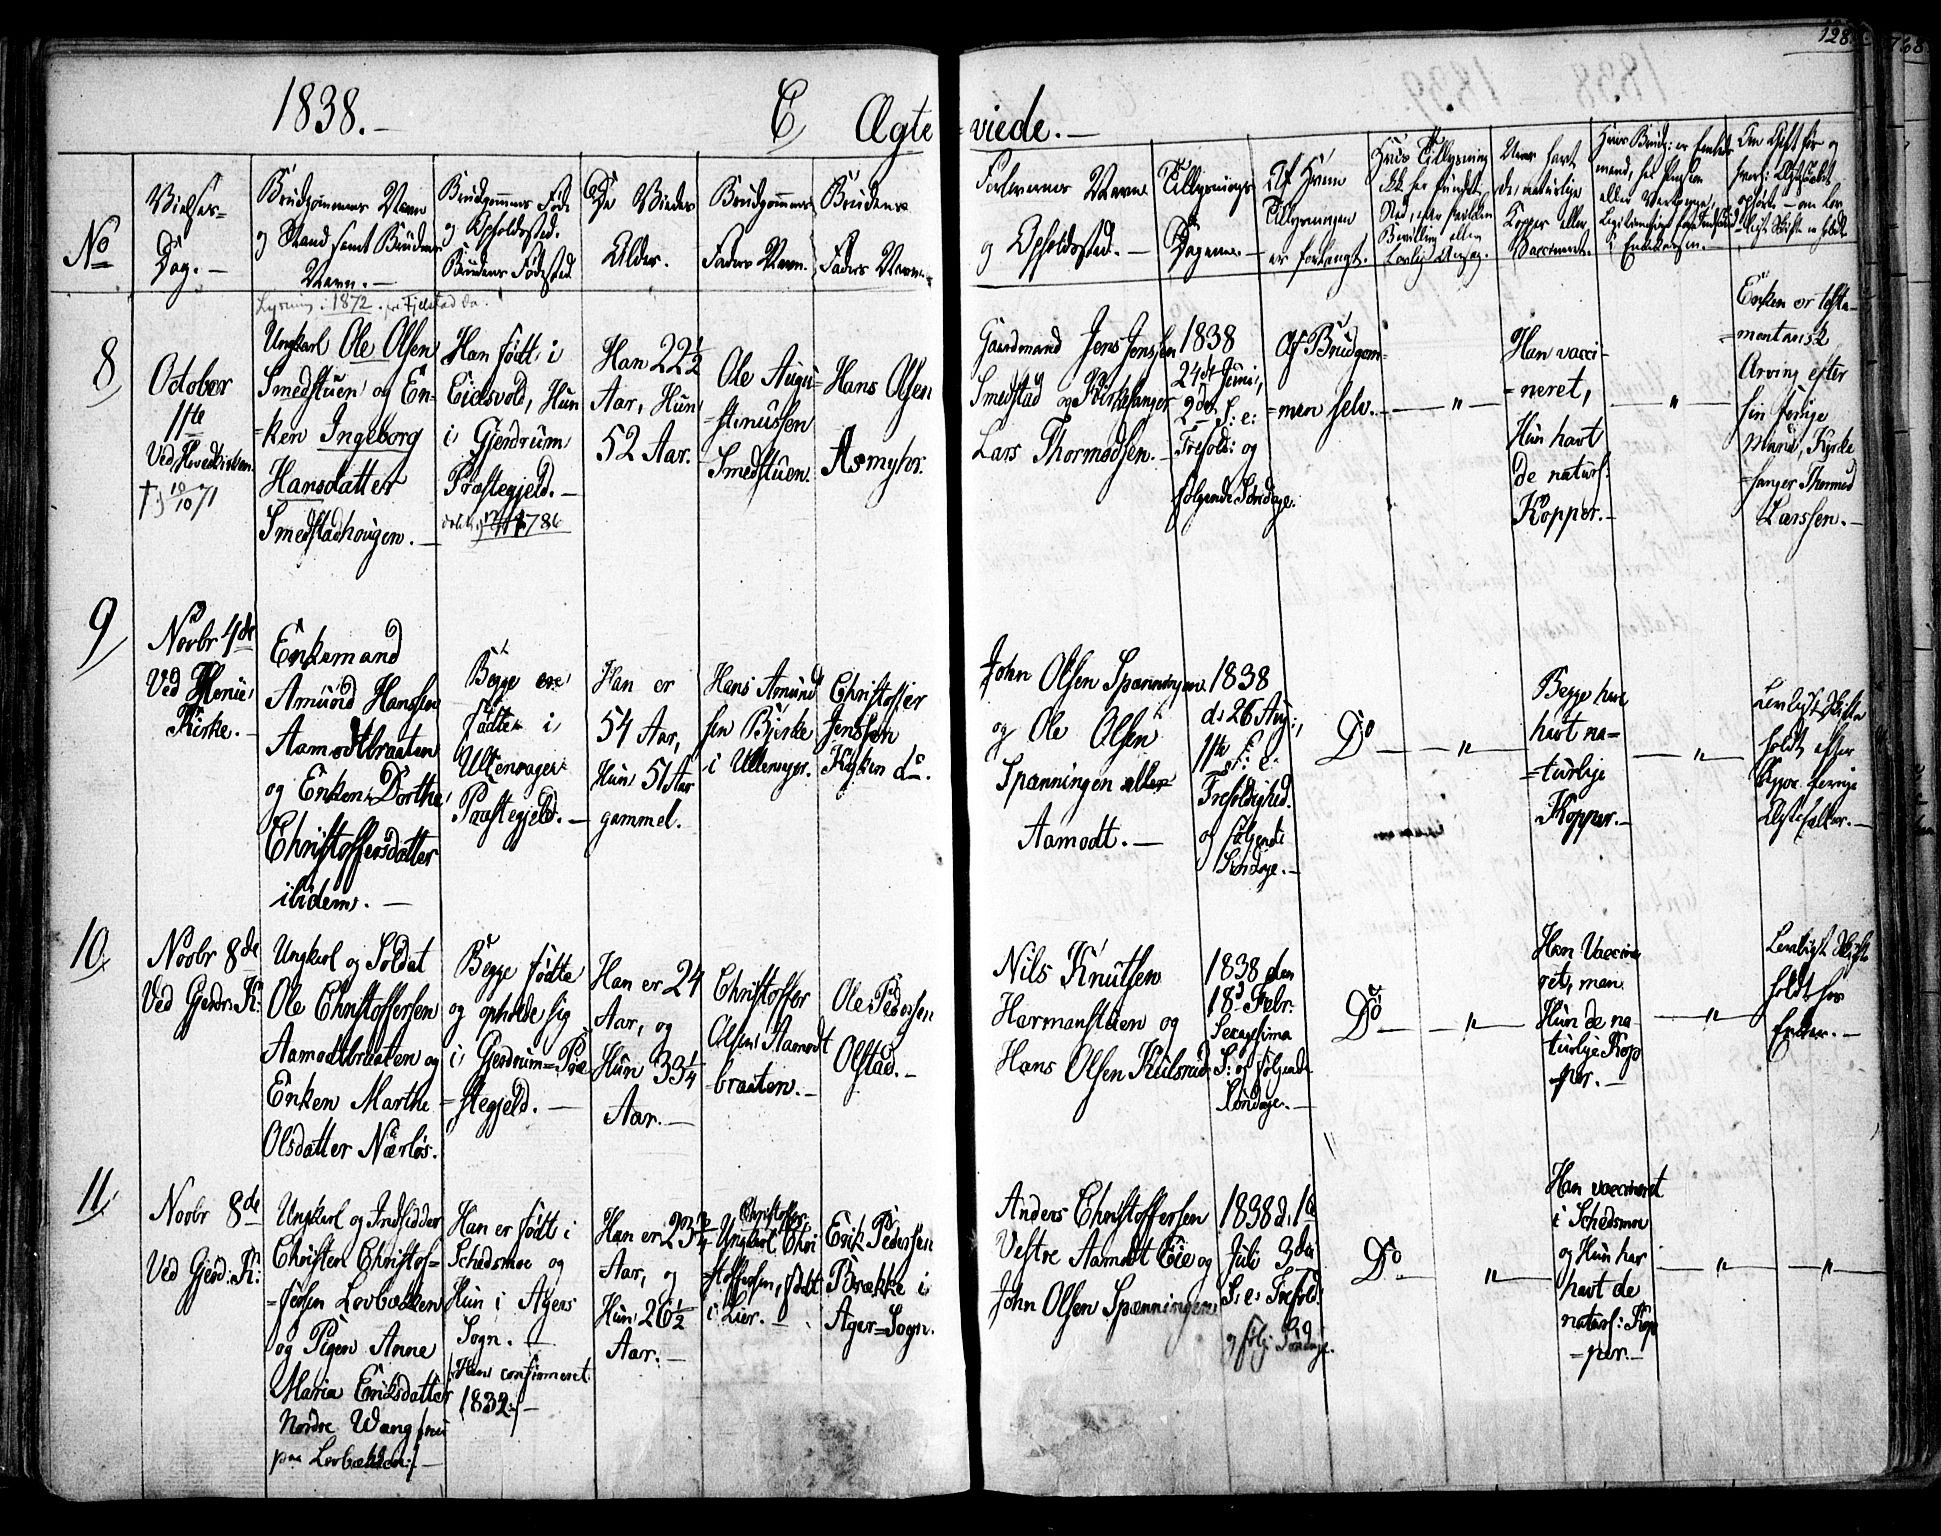 1838.—
C, Ægte
=viede.—
128
No
Vielses=
Dag.—
Brudgommens Navn
og Stand samt Brudens
Navn.—
Brudgommens Føde
og Opholdssted.
Brudens Fødested
De Viedes
Alder.
Brudgommens
Faders Navn.
Brudens
Faders Navn.
Forlovernes Navne
og Opholdssted.—
Tillysnings
Dagene.—
Af Hvem
Tillysningen
er forlangt.
Hvis Tillysning
ikke har fundet
Sted, efter hvilken
Bevilling eller
Lovlig Ansøg.
Om havt
de naturlige
Kopper eller
Vaccineret.
8,
October
1ste
Ved Hovedkirken
† 10/10 71
Lysning i 1872
Ungkarl Ole Olsen
Smedstuen og En=
=ken Ingeborg
Hansdatter
Smedstadhougen.—
Han født i
Eidsvold, Hun
i Gjerdrum
Præstegjeld.—
1786
Han 22½
Aar, Hun
52 Aar.
Ole Augu=
=stinussen
Smedstuen.
Hans Olsen
Asmyhr.
Gaardmand Jens Jenssen
Smedstad og Kirkesanger
Lars Thormodsen.—
1838
24de Juni,
2den S: e:
Trefold: og
følgende Søndage.
Af Brudgom=
=men selv.
— " —
Han vacci=
=neret,
Hun havt
de naturl:
Kopper.—
"
Enken er testa=
=mentarisk
Arving efter
sin forrige
Mand, Kirke
=sanger Thormod
Larssen.—
9,
Novbr 4de
Ved Henie
Kirke.—
Enkemand
Amund Hanssen
Aamodtbraaten
og Enken Dorthe
Christoffersdatter
ibidem.—
Begge ere
fødte i
Ullensager
Præstegjeld.—
Han er
54 Aar,
Hun 51 Aar
gammel.
Hans Amund
sen Bjerke
i Ullensager.
Christoffer
Jenssen
Kyken do.
John Olsen Spænningen
og Ole Olsen
Spænningen eller
Aamodt.—
1838
d: 26 Aug:,
S: e:
Trefoldighed.
og følgende
Søndage.—
Do
— " —
Begge have
havt na=
=turlige
Kopper.—
— " —
Lovligt Skifte
holdt efter
Begges forrige
Ægtefæller.—
10,
Novbr 8de
Ved Gjerdr: K:
Ungkarl og Soldat
Ole Christoffersen
Aamodtbraaten og
Enken Marthe
Olsdatter Nærløs.
Begge fødte
og opholde sig
i Gjerdrum=Præ
=stegjeld.—
Han er 24
Aar, og
Hun 33¼
Aar.—
Christoffer
Olsen Aamodt
braaten.—
Ole Pedersen
Olstad.—
Nils Knutsen
Harmanstuen og
Hans Olsen Kulsrud
1838 den
18d Febr:
Sexagesima
S: og følgende
Søndage.—
Do
— " —
Han Vaccine
ret, men
Hun de na=
turlige Kop
per.—
— " —
Lovligt Skifte
holdt hos
Enken.—
11,
Novbr 8de
Ved Gjerd: K:
Ungkarl og Indsidder
Christen Christof=
=fersen Lovbækken
og Pigen Anne
Maria Eriksdatter
Nordre Wang
paa Lovbækken.—
Han er født i
Schedsmoe og
Hun i Agers
Sogn.—
Han confirmeret
1832.—
Han er 23
Aar, og
Hun 26½
Aar.—
Christoffer
Ungkarl Chri
stoffersen, født
i Lier.—
Erik Pedersen
Brække i
Ager=Sogn.
Anders Christoffersen
Vestre Aamodt Eie og
John Olsen Spænningen
1838 d: 1te
Juli 3die
S: e: Trefold:
og følg: Søndage.
Do
— " —
Han vaccineret
i Schedsmoe
og Hun har
havt de
naturl: Kop
=per.—
— " —
— " —